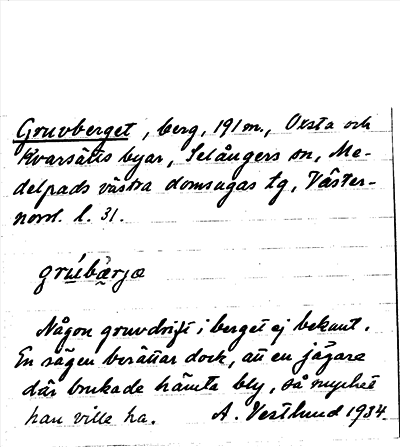 Gruvberget, berg, 191 m., Oxsta och
Kvarsätts byar, Selångers sn, Me-
delpads västra domsagas tg, Väster-
norrl. l. 31.
grú̱bæ̱rjæ
Någon gruvdrift i berget ej bekant.
En sägen berättar dock, att en jägare
där brukade hämta bly, så mycket
han ville ha. A. Vestlund 1934.